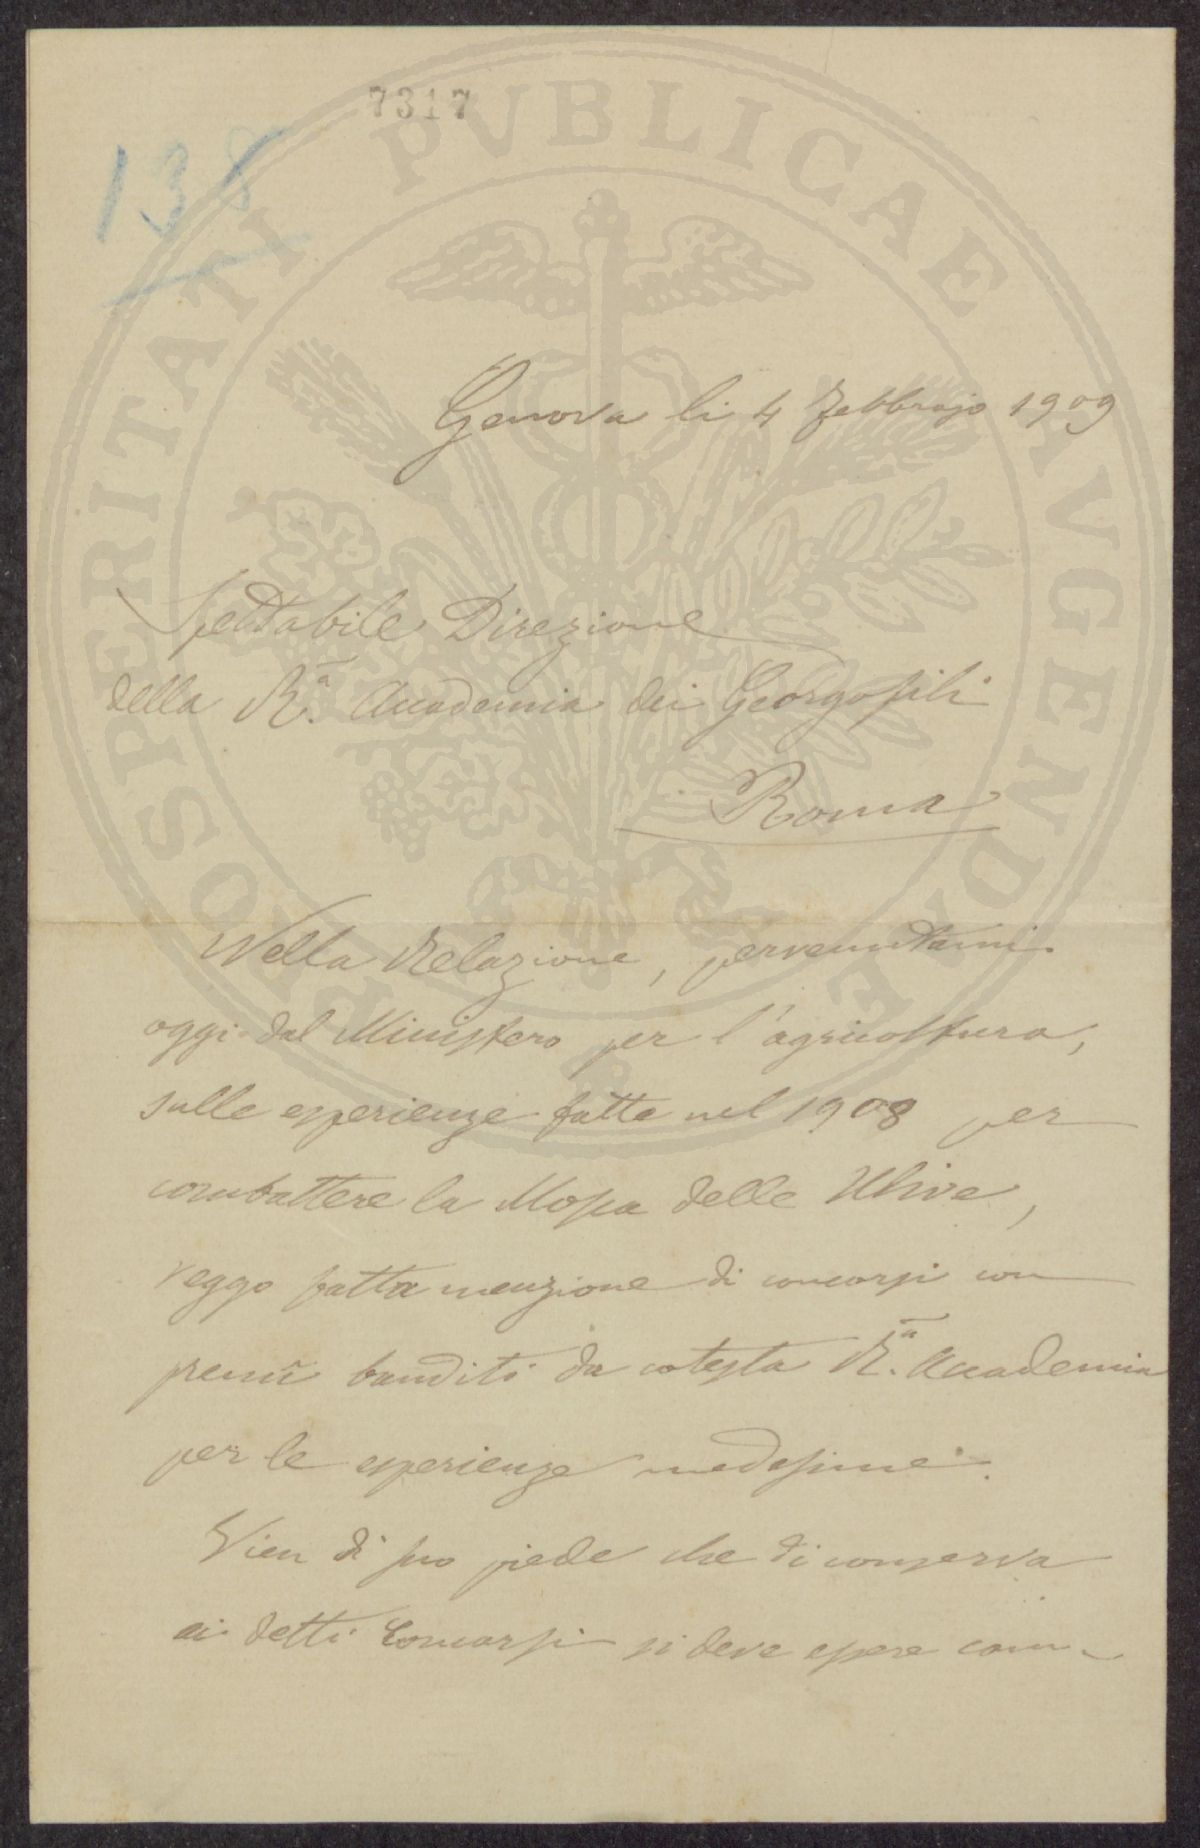 7317
138
PROSPERITATI PVBLICAE AVGENDAE
Genova li 4 Febbrajo 1909
Spettabile Direzione
della R.ª Accademia dei Georgofili
Roma
Nella Relazione, pervenutami
oggi dal Ministero per l'agricoltura,
sulle esperienze fatte nel 1908 per
combattere la Mosca delle Ulive,
veggo fatta menzione di concorsi con
premî banditi da cotesta R.ª Accademia
per le esperienze medesime.
Vien di suo piede che di conserva
ai detti Concorsi si deve essere com-